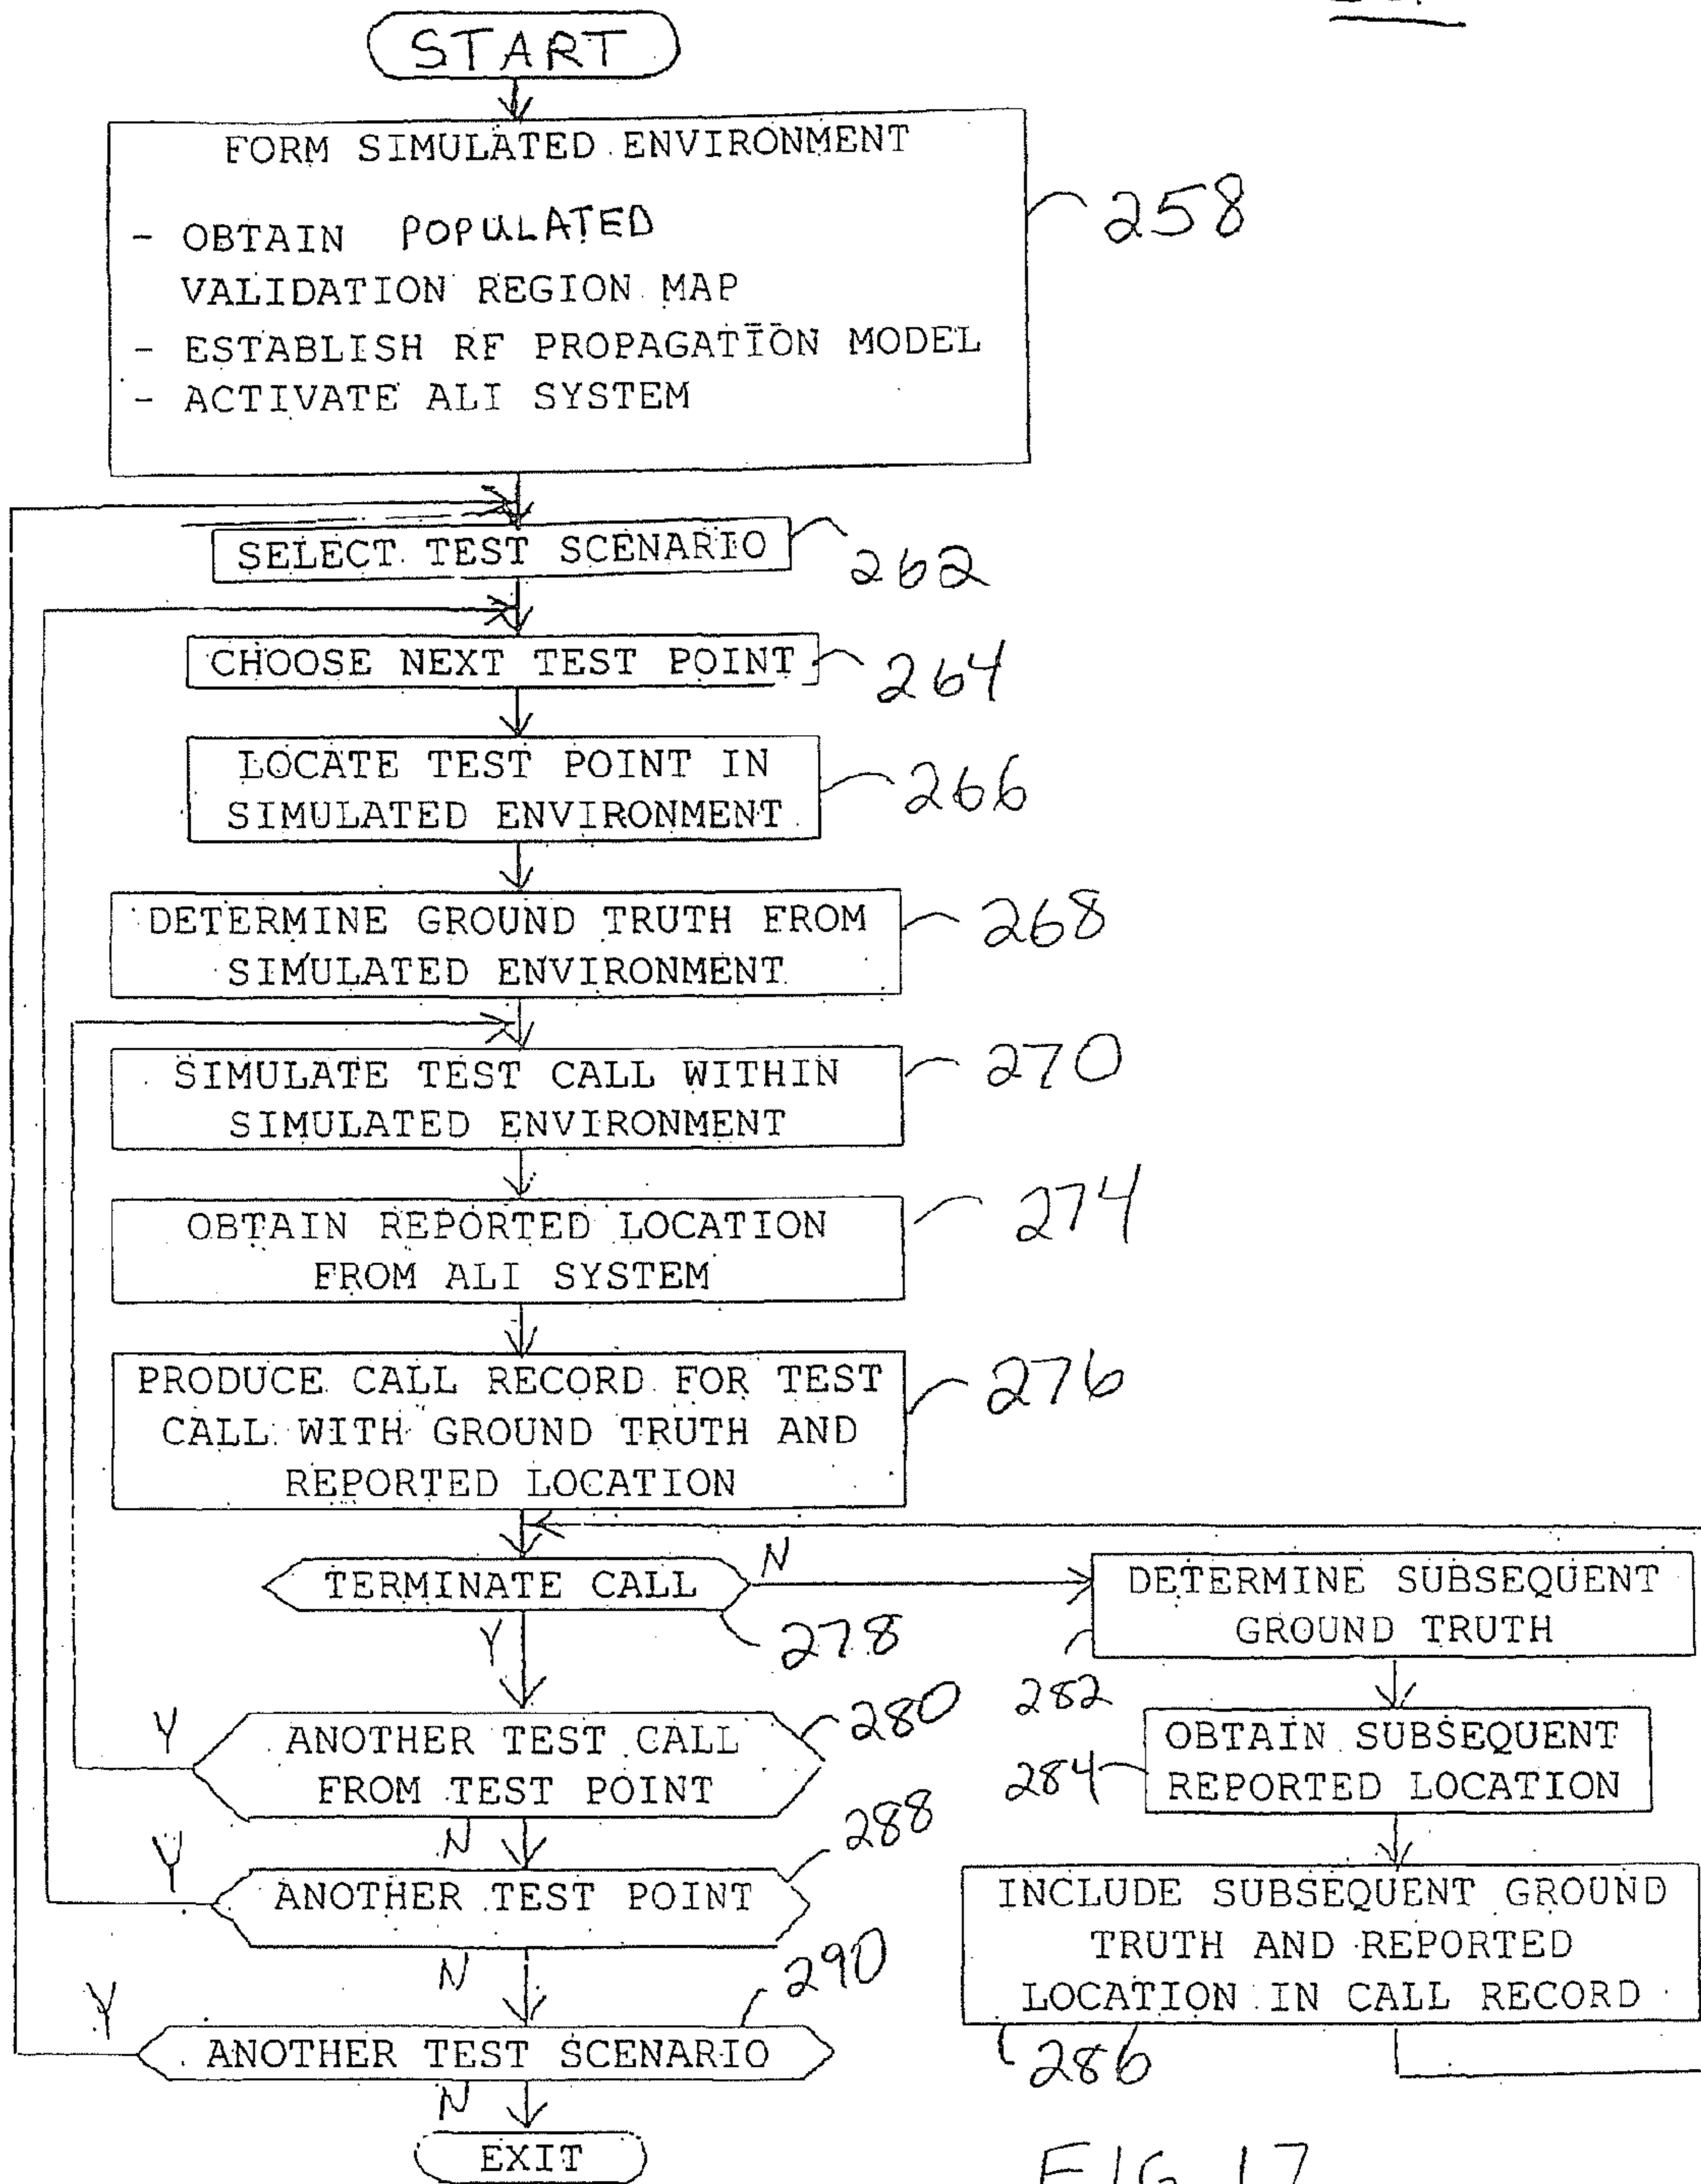 START
FORM SIMULATED ENVIRONMENT
- OBTAIN POPULATED
VALIDATION REGION MAP
- ESTABLISH RF PROPAGATION MODEL
- ACTIVATE ALI SYSTEM
258
SELECT TEST SCENARIO
262
CHOOSE NEXT TEST POINT
264
LOCATE TEST POINT IN
SIMULATED ENVIRONMENT
266
DETERMINE GROUND TRUTH FROM
SIMULATED ENVIRONMENT
268
SIMULATE TEST CALL WITHIN
SIMULATED ENVIRONMENT
270
OBTAIN REPORTED LOCATION
FROM ALI SYSTEM
274
PRODUCE CALL RECORD FOR TEST
CALL WITH GROUND TRUTH AND
REPORTED LOCATION
276
TERMINATE CALL
N
Y
278
DETERMINE SUBSEQUENT
GROUND TRUTH
282
ANOTHER TEST CALL
FROM TEST POINT
Y
280
N
OBTAIN SUBSEQUENT
REPORTED LOCATION
284
ANOTHER TEST POINT
Y
288
N
INCLUDE SUBSEQUENT GROUND
TRUTH AND REPORTED
LOCATION IN CALL RECORD
286
ANOTHER TEST SCENARIO
Y
290
N
EXIT
FIG 17